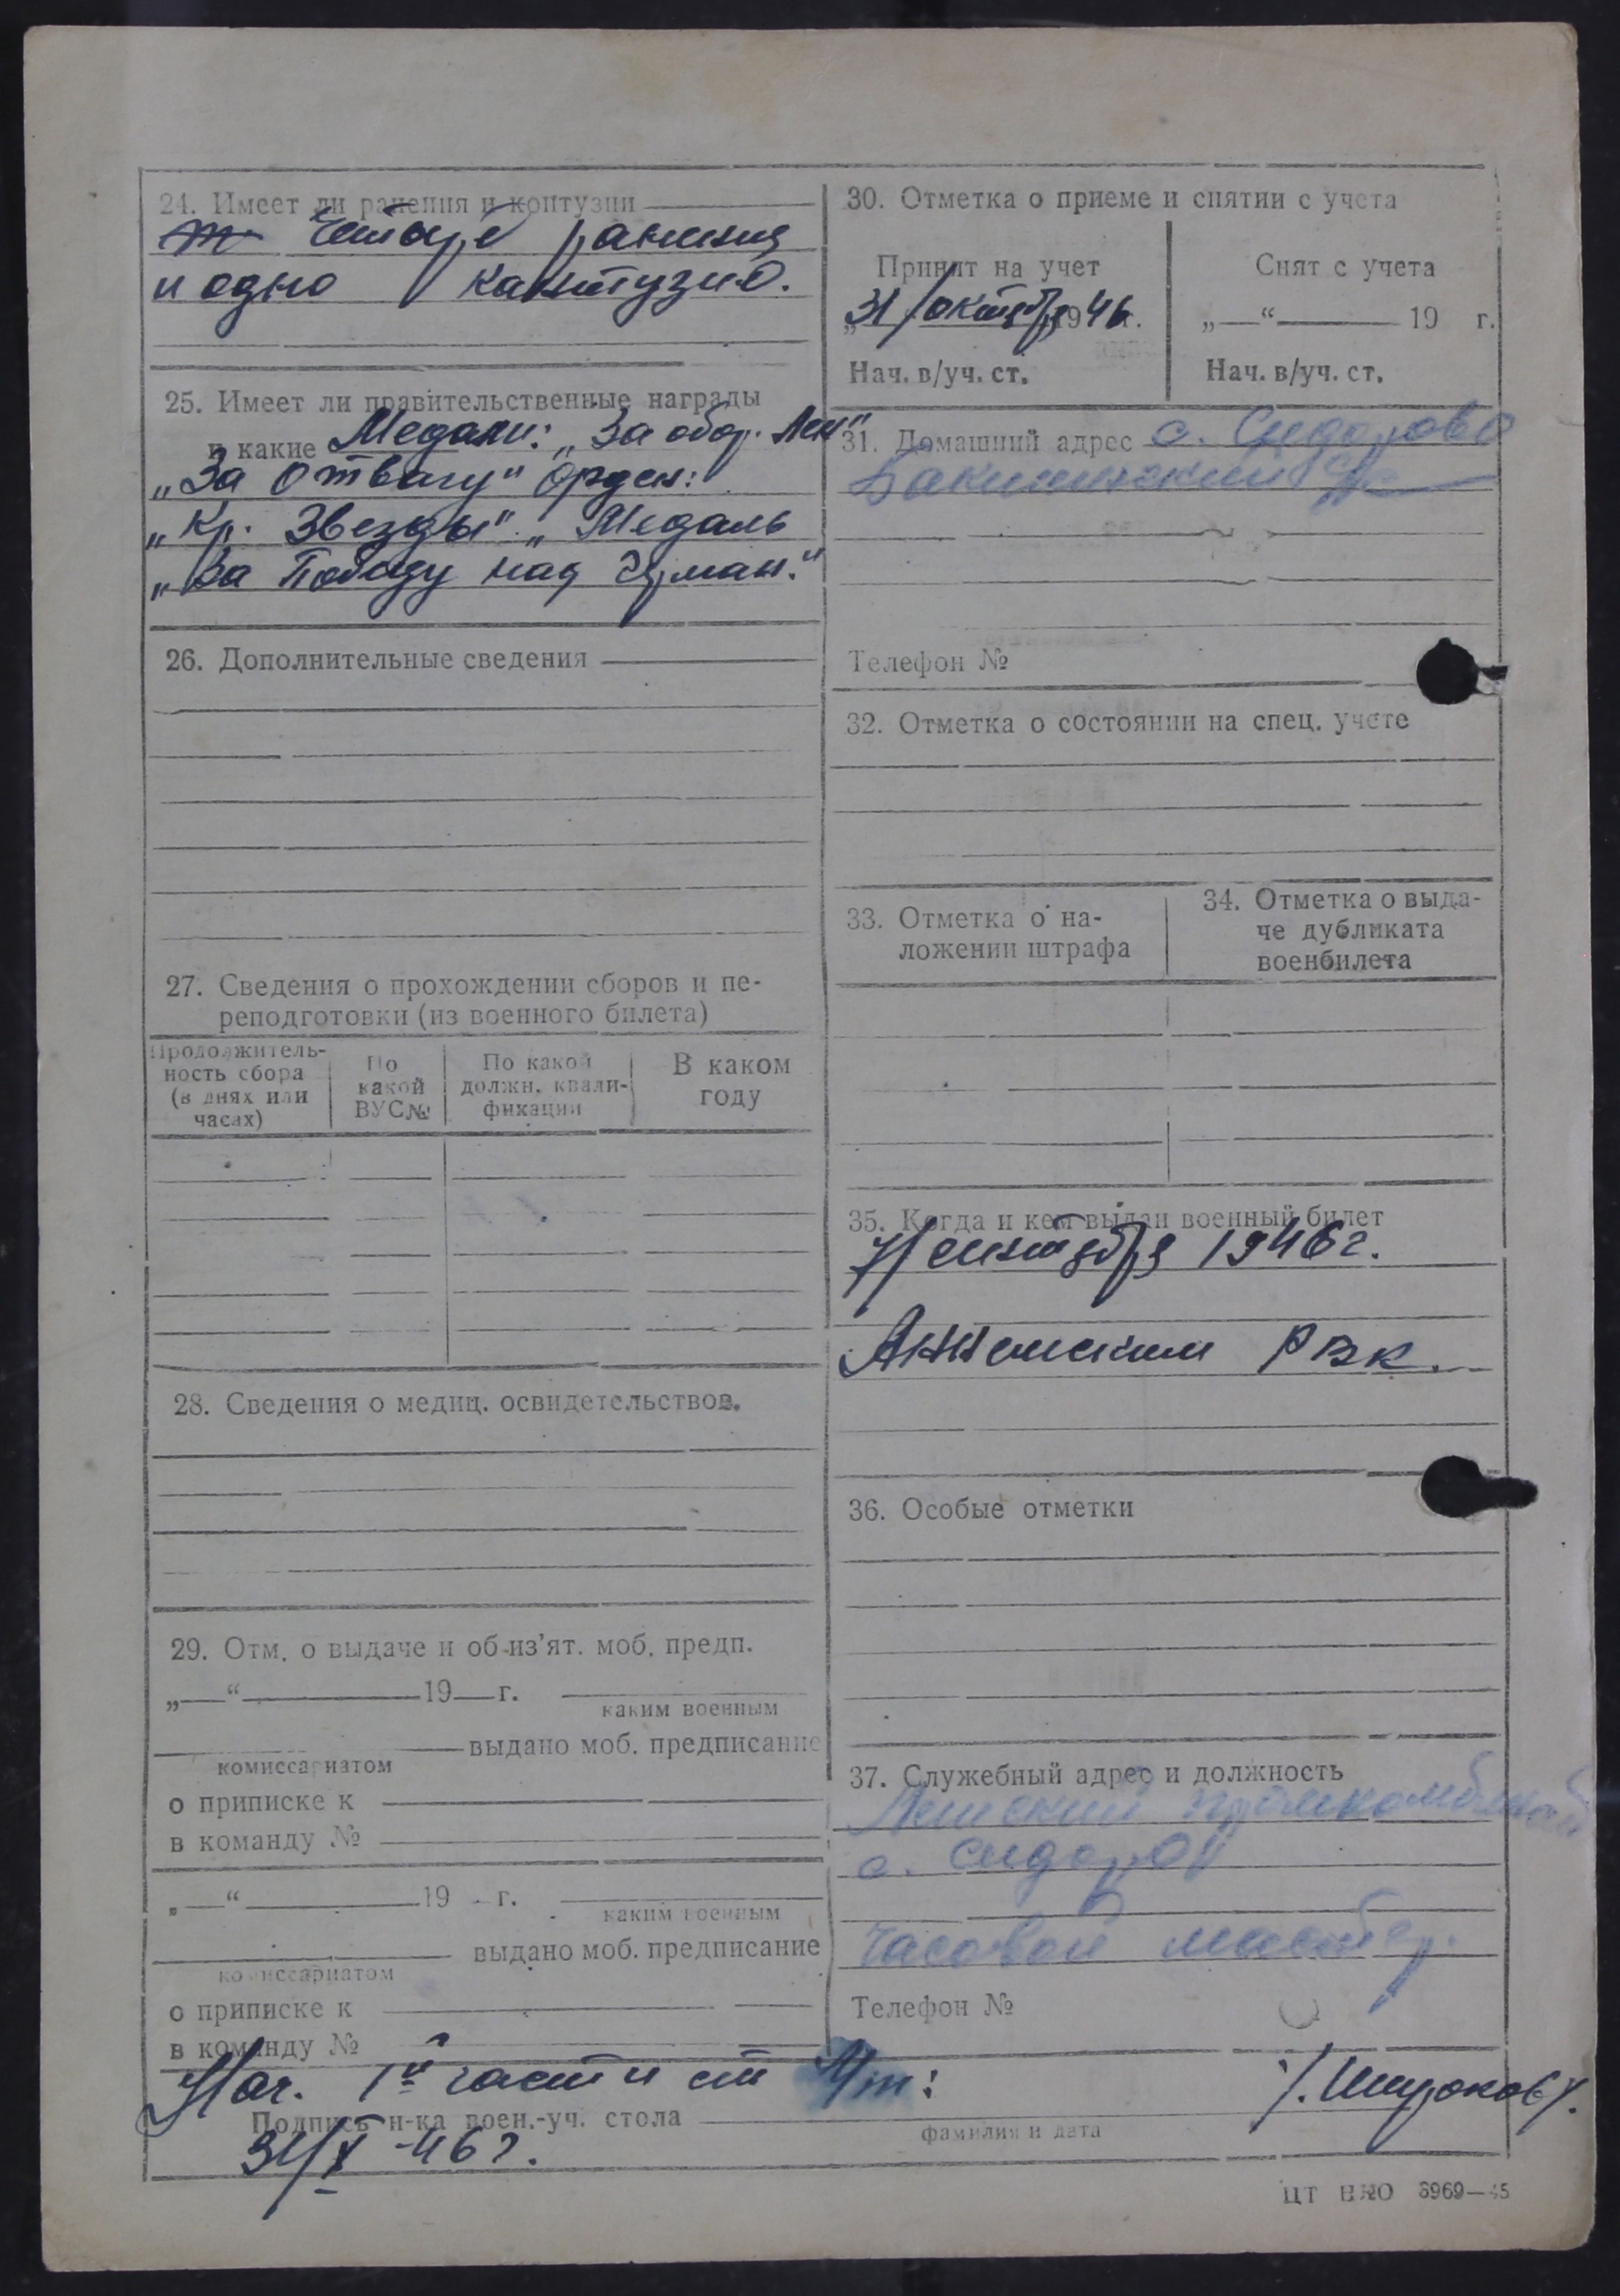 24. Имеет ли ранения и контузии
Четыре ранения
и одно контузио.
25. Имеет ли правительственные награды
и какие Медали: „За обор. Лен"
„За отвагу" орден:
„Кр. Звезды" „Медаль
„За Победу над Герман."
26. Дополнительные сведения
27. Сведения о прохождении сборов и пе-
реподготовки (из военного билета)
Продолжитель-
ность сбора
(в днях или
часах)
По
какой
ВУС№
По какой
должн. квали-
фикации
В каком
году
28. Сведения о медиц. освидетельствов.
29. Отм. о выдаче и об из'ят. моб. предп.
„—“ 19 г.
каким военным
выдано моб. предписание
комиссариатом
о приписке к
в команду №
„—“ 19 г.
каким военным
выдано моб. предписание
комиссариатом
о приписке к
в команду №
30. Отметка о приеме и снятии с учета
Принят на учет
„31/октября 1946 г.
Нач. в/уч. ст.
Снят с учета
„—“ 19 г.
Нач. в/уч. ст.
31. Домашний адрес с. Сидорово
Телефон №
32. Отметка о состоянии на спец. учете
33. Отметка о на-
ложении штрафа
34. Отметка о выда-
че дубликата
военбилета
35. Когда и кем выдан военный билет
7/сентября 1946 г.
РВК.
36. Особые отметки
37. Служебный адрес и должность
промкомбинат
с. Сидоров
Часовой мастер.
Телефон №
Нач. 1й части ст
Подпись н-ка воен.-уч. стола
фамилия и дата
31/X-46 г.
ЦТ НКО 6969—45